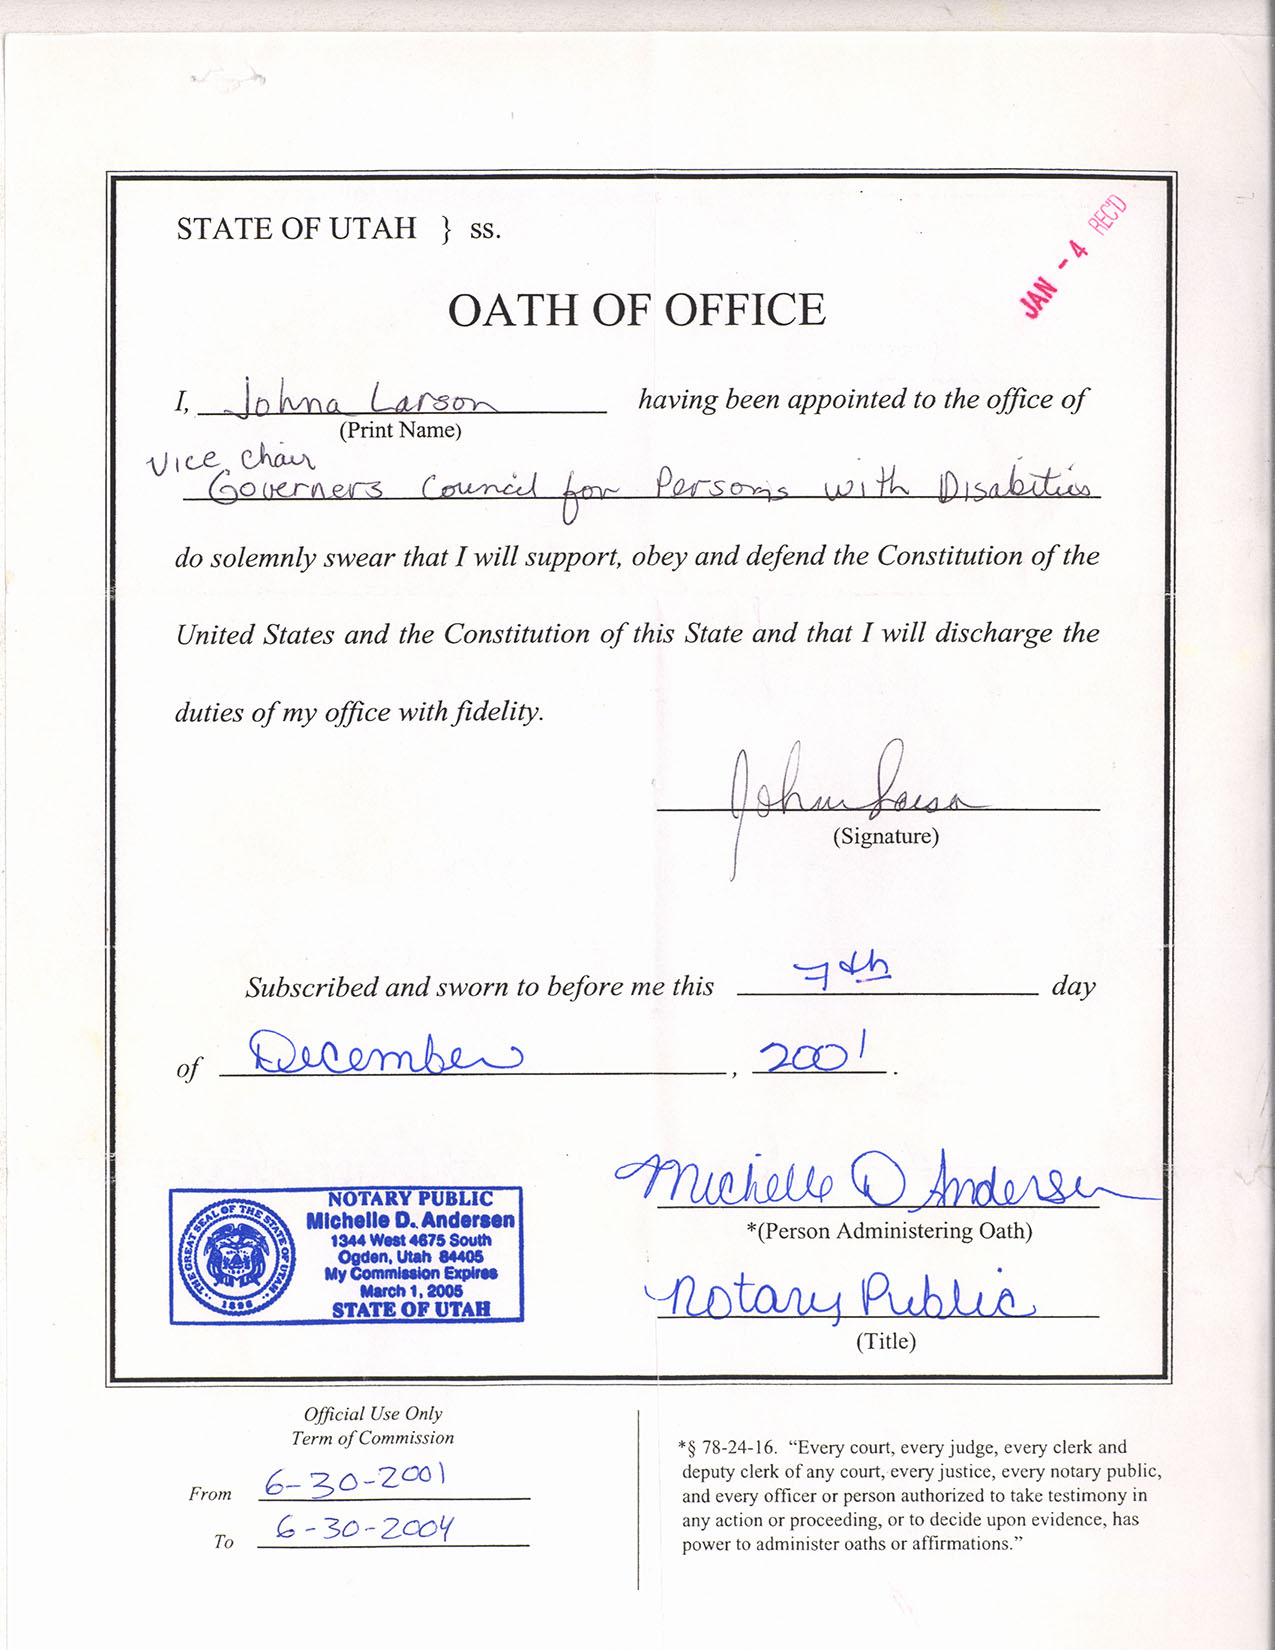 STATE OF UTAH } ss.
JAN - 4 REC'D
OATH OF OFFICE
I, Johna Larson having been appointed to the office of
(Print Name)
Vice Chair
Governers Council for Persons with Disabities
do solemnly swear that I will support, obey and defend the Constitution of the
United States and the Constitution of this State and that I will discharge the
duties of my office with fidelity.
Johna Larson
(Signature)
Subscribed and sworn to before me this 7th day
of December, 2001.
Michelle D Andersen
*(Person Administering Oath)
Notary Public
(Title)
THE GREAT SEAL OF THE STATE OF UTAH
1896
NOTARY PUBLIC
Michelle D. Andersen
1344 West 4675 South
Ogden, Utah 84405
My Commission Expires
March 1, 2005
STATE OF UTAH
Official Use Only
Term of Commission
From 6-30-2001
To 6-30-2004
*§ 78-24-16. “Every court, every judge, every clerk and
deputy clerk of any court, every justice, every notary public,
and every officer or person authorized to take testimony in
any action or proceeding, or to decide upon evidence, has
power to administer oaths or affirmations.”